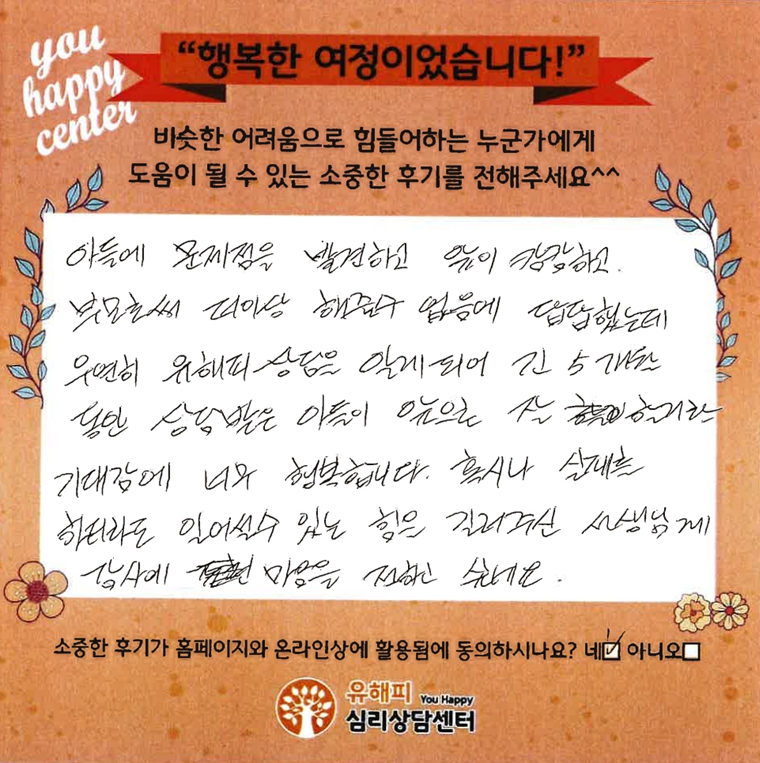 you
happy
center
“행복한 여정이었습니다!”
비슷한 어려움으로 힘들어하는 누군가에게
도움이 될 수 있는 소중한 후기를 전해주세요^^
아들에 문제점을 발견하고 앞이 캄캄하고.
부모로써 더이상 해줄수 없음에 답답했는데
우연히 유해피 상담을 알게되어 긴 5개월
동안 상담받은 아들이 앞으로 잘 하리란
기대감에 너무 행복합니다. 혹시나 실패를
하더라도 일어설수 있는 힘을 길러주신 선생님께
감사에 마음을 전하고 싶네요.
소중한 후기가 홈페이지와 온라인상에 활용됨에 동의하시나요? 네☑ 아니오□
유해피 You Happy
심리상담센터